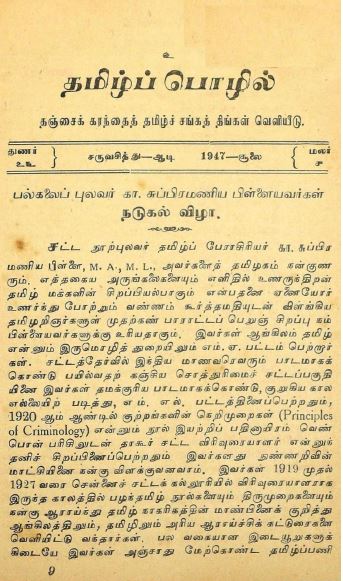 உ
தமிழ்ப் பொழில்
தஞ்சைக் கரந்தைத் தமிழ்ச் சங்கத் திங்கள் வெளியீடு.
துணர் உ௩ } சருவசித்து—ஆடி 1947—சூலை { மலர் ௪
பல்கலைப் புலவர் கா. சுப்பிரமணிய பிள்ளையவர்கள்
நடுகல் விழா.
சட்ட நூற்புலவர் தமிழ்ப் பேராசிரியர் கா. சுப்பிர
மணிய பிள்ளை, M. A., M. L., அவர்களைத் தமிழகம் நன்குண
ரும். எத்தகைய அருங்கலைகளையும் எளிதில் உணருந்திறன்
தமிழ் மக்களின் சிறப்பியல்பாகும் என்பதனை ஏனையோர்
உணர்ந்து போற்றும் வண்ணம் கூர்த்தமதியுடன் விளங்கிய
தமிழறிஞர்களுள் முதற்கண் பாராட்டப் பெறுஞ் சிறப்பு கம்
பிள்ளையவர்களுக்கு உரியதாகும். இவர்கள் ஆங்கிலம் தமிழ்
என்னும் இருமொழித் துறையிலும் எம். ஏ. பட்டம் பெற்றார்
கள். சட்டத்தேர்வில் இந்திய மாணவரெவரும் பாடமாகக்
கொண்டு பயில்வதற் கஞ்சிய சொத்துரிமைச் சட்டப்பகுதி
யினை இவர்கள் தமக்குரிய பாடமாகக்கொண்டு, குறுகிய கால
எல்லையிற் படித்து, எம். எல். பட்டத்தினைப்பெற்றதும்,
1920 ஆம் ஆண்டில் குற்றங்களின் நெறிமுறைகள் (Principles
of Crimnology) என்னும் நூல் இயற்றிப் பதினாயிரம் வெண்
பொன் பரிசிலுடன் தாகூர் சட்ட விரிவுரையாளர் என்னுந்
தனிச் சிறப்பினைப்பெற்றதும் இவர்களது நுண்ணறிவின்
மாட்சியினை நன்கு விளக்குவனவாம். இவர்கள் 1919 முதல்
1927 வரை சென்னைச் சட்டக் கல்லூரியில் விரிவுரையாளராக
இருந்த காலத்தில் பழந்தமிழ் நூல்களையும் திருமுறைகளையும்
நன்கு ஆராய்ந்து தமிழ் நாகரிகத்தின் மாண்பினைக் குறித்து
ஆங்கிலத்திலும், தமிழிலும் அரிய ஆராய்ச்சிக் கட்டுரைகளை
வெளியிட்டு வந்தார்கள். பல வகையான இடையூறுகளுக்
கிடையே இவர்கள் அஞ்சாது மேற்கொண்ட தமிழ்ப்பணி
9